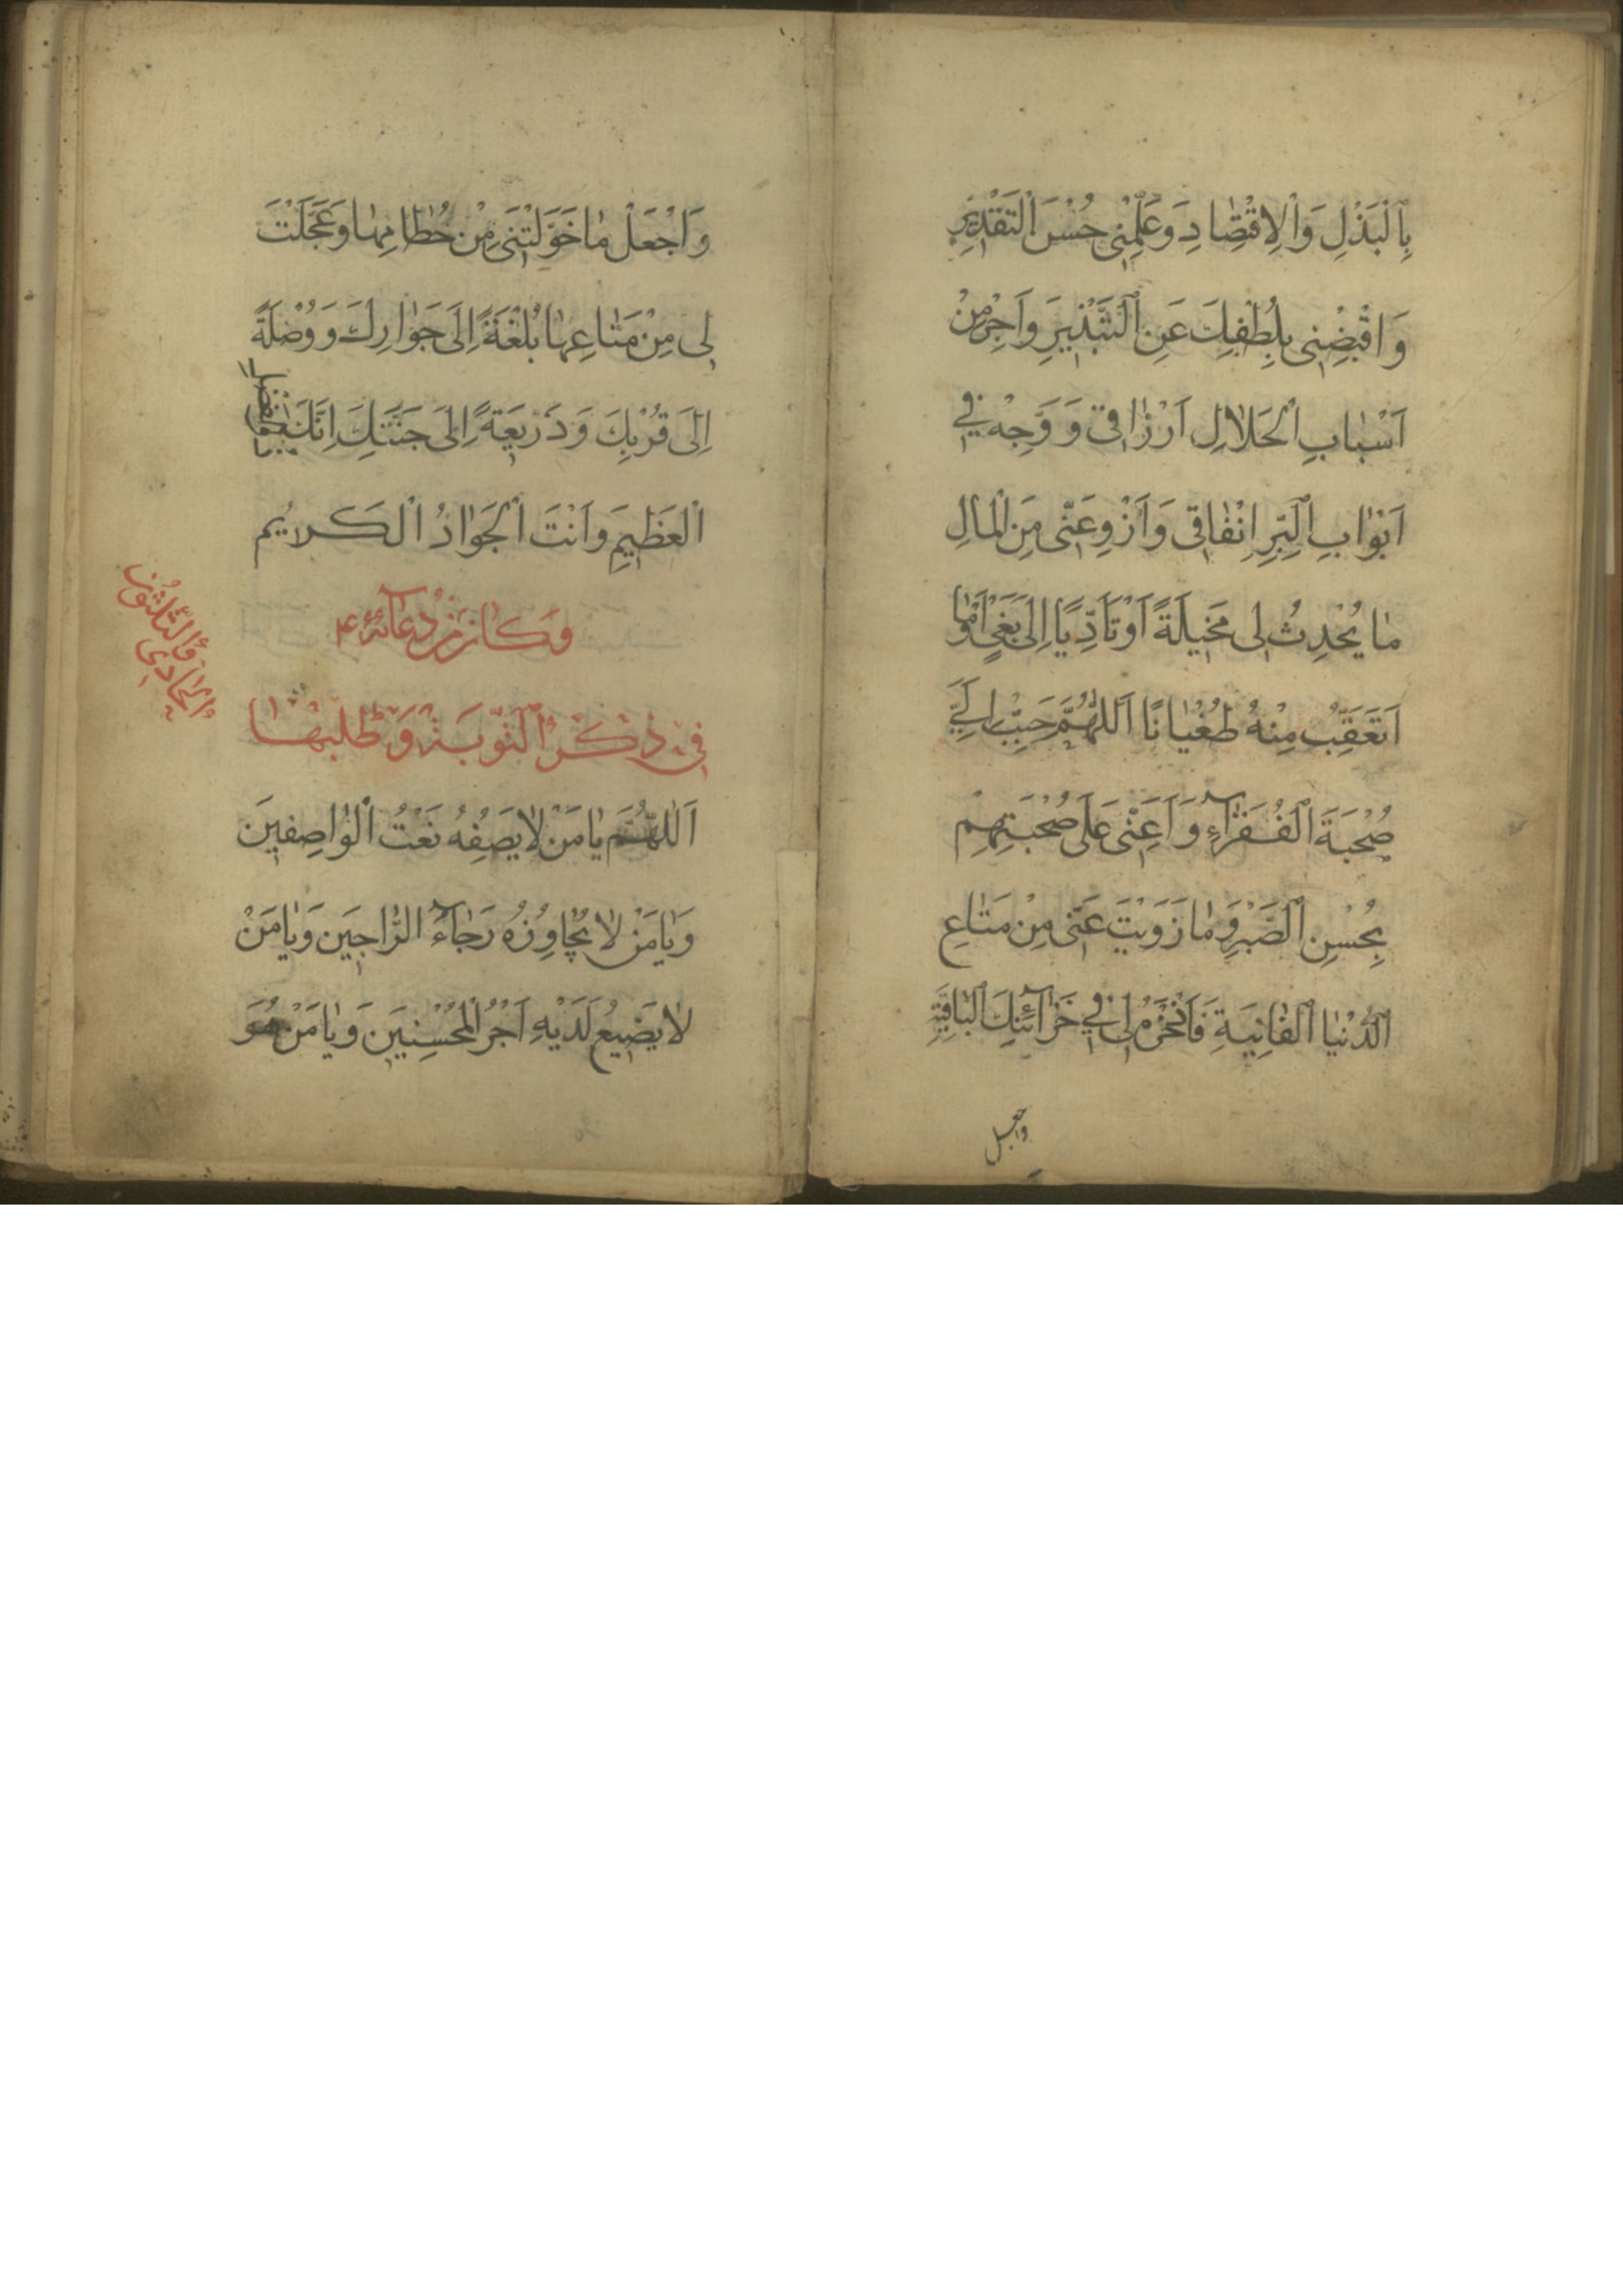 بِالْبَذْلِ وَالْاِقْتِصَادِ وَعَلِّمْنِى حُسْنَ التَّقْدِيرِ
وَاقْبِضْنِى بِلُطْفِكَ عَنِ التَّبْذِيرِ وَاَجْرِ مِنْ
اَسْبَابِ الْحَلَالِ اَرْزَاقِى وَوَجِّهْ فِي
اَبْوَابِ الْبِرِّ اِنْفَاقِى وَازْوِ عَنِّى مِنَ الْمَالِ
مَا يُحْدِثُ لِى مَخِيلَةً اَوْ تَاَدِّيًا اِلَى بَغْيٍ اَوْ مَا
اَتَعَقَّبُ مِنْهُ طُغْيَانًا اَللّٰهُمَّ حَبِّبْ اِلَيَّ
صُحْبَةَ الْفُقَرَآءِ وَاَعِنِّى عَلَى صُحْبَتِهِمْ
بِحُسْنِ الصَّبْرِ وَمَا زَوَيْتَ عَنِّى مِنْ مَتَاعِ
الدُّنْيَا الْفَانِيَةِ فَاذْخَرْهُ لِى فِي خَزَآئِنِكَ الْبَاقِيَةِ
واجعل
وَاجْعَلْ مَا خَوَّلْتَنِى مِنْ حُطَامِهَا وَعَجَّلْتَ
لِى مِنْ مَتَاعِهَا بُلْغَةً اِلَى جَوَارِكَ وَوُصْلَةً
اِلَى قُرْبِكَ وَذَرِيعَةً اِلَى جَنَّتِكَ اِنَّكَ
الْعَظِيمِ وَاَنْتَ الْجَوَادُ الْكَرِيمُ
وَكَانَ مِنْ دُعَآئِهِ ع
فِى ذِكْرِ التَّوْبَةِ وَطَلَبِهَا
الحَادِى وَالثَّلٰثُونَ
اَللّٰهُمَّ يَا مَنْ لَا يَصِفُهُ نَعْتُ الْوَاصِفِينَ
وَيَا مَنْ لَا يُجَاوِزُهُ رَجَآءُ الرَّاجِينَ وَيَا مَنْ
لَا يَضِيعُ لَدَيْهِ اَجْرُ الْمُحْسِنِينَ وَيَا مَنْ هُوَ